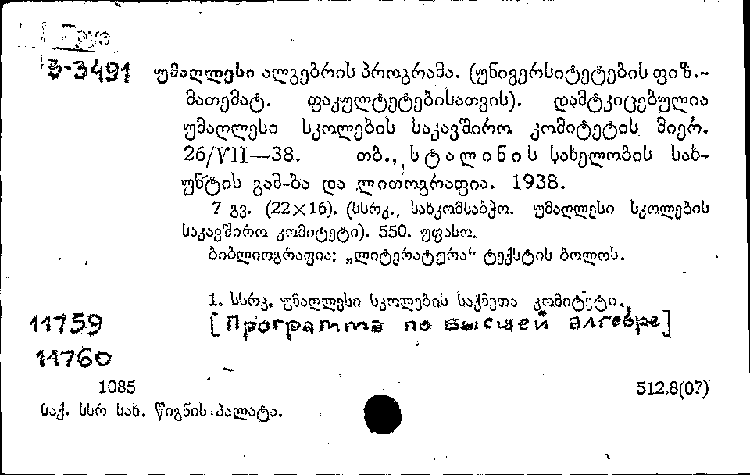 3-3491 უმაღლესი ალგებრის პროგრამა. (უნივერსიტეტების ფიზ.-
მათემატ. ფაკულტეტებისათვის). დამტკიცებულია
უმაღლესი სკოლების საკავშირო კომიტეტის მიერ.
26/VII—38. თბ., სტალინის სახელობის სახ-
უნტის გამ-ბა და ლითოგრაფია. 1938.
7 გვ. (22×16). (სსრკ., სახკომსაბჭო. უმაღლესი სკოლების
საკავშირო კომიტეტი). 550. უფასო.
ბიბლიოგრაფია: „ლიტერატურა“ ტექსტის ბოლოს.
1. სსრკ. უმაღლესი სკოლების საქმეთა კომიტეტი.
11759 [Программа по высшей алгебре]
11760
1085 512.8(07)
საქ. სსრ სახ. წიგნის პალატა.